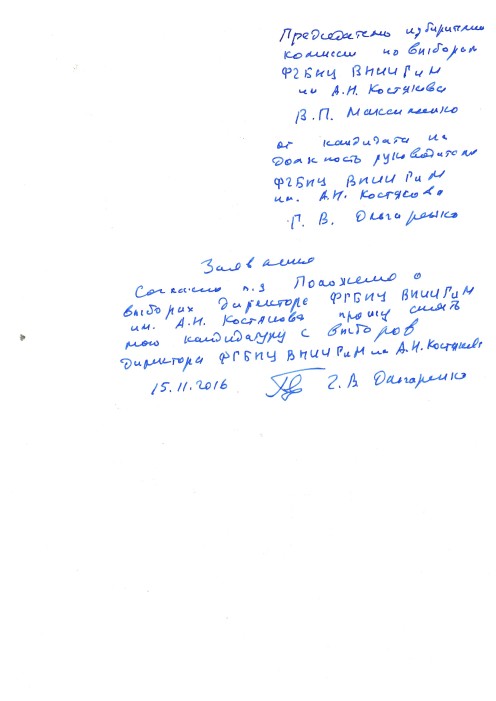 Председателю избирательно
комиссии по выборам
ФГБНЦ ВНИИГиМ
им А.Н. Костякова
В.П. Максименко
от кандидата на
должность руководителя
ФГБНЦ ВНИИГиМ
им. А.Н. Костякова
Г. В. Ольгаренко
Заявление
Согласно п.9 Положения о
выборах директора ФГБНЦ ВНИИГиМ
им. А.Н. Костякова прошу снять
мою кандидатуру с выборов
директора ФГБНЦ ВНИИГиМ им А.Н. Костякова
15.11.2016 Г. В. Ольгаренко